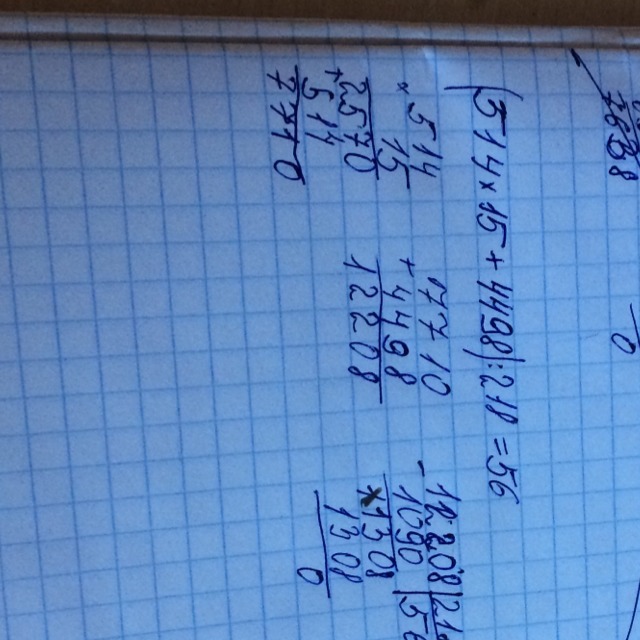 (514×15+4498):218=56
×514
15
2570
+514
7710
7710
+4498
12208
12208|218
1090|56
1308
1308
0
0